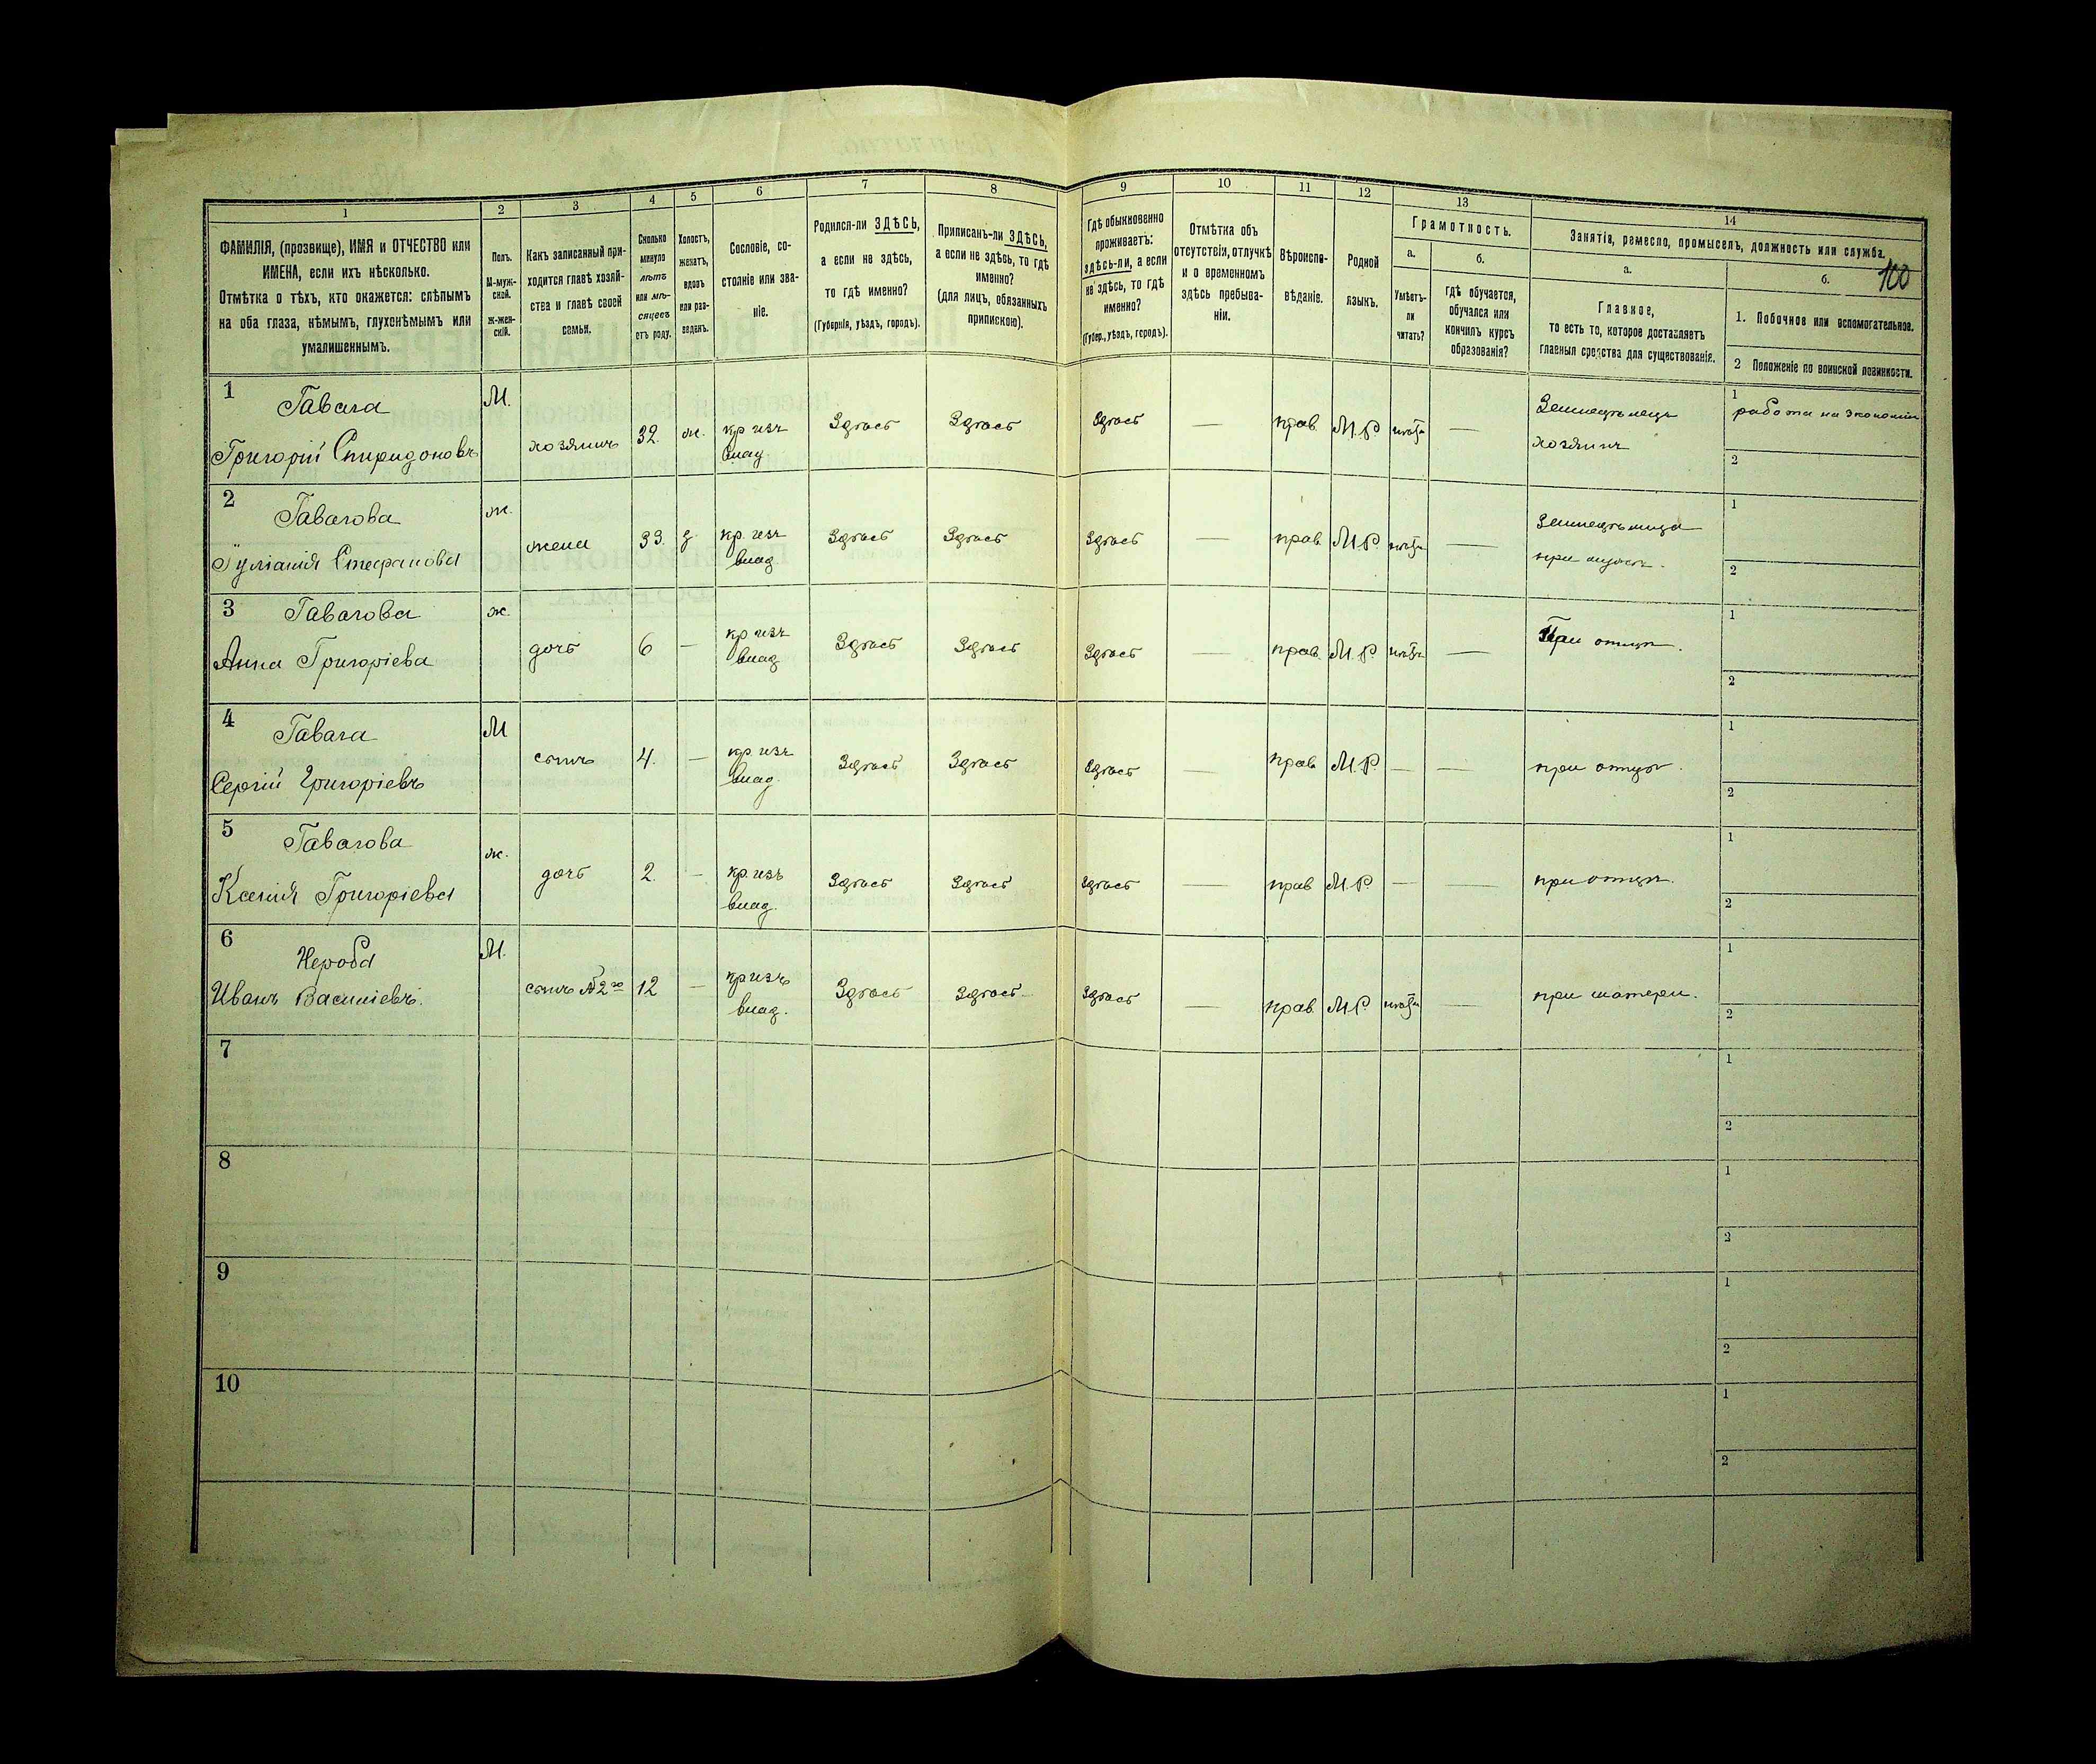 1 2 3 4 5 6 7 8 9 10 11 12 13 14
ФАМИЛІЯ, (прозвище), ИМЯ и ОТЧЕСТВО или
ИМЕНА, если ихъ нѣсколько.
Отмѣтка о тѣхъ, кто окажется: слѣпымъ
на оба глаза, нѣмымъ, глухонѣмымъ или
умалишеннымъ.
Полъ.
М-муж-
ской.
Ж-жен-
скій.
Какъ записанный при-
ходится главѣ хозяй-
ства и главѣ своей
семьи.
Сколько
минуло
лѣтъ
или мѣ-
сяцевъ
отъ роду.
Холостъ,
женатъ,
вдовъ
или раз-
веденъ.
Сословіе, со-
стояніе или зва-
ніе.
Родился-ли ЗДѢСЬ,
а если не здѣсь,
то гдѣ именно?
(Губернія, уѣздъ, городъ).
Приписанъ-ли ЗДѢСЬ,
а если не здѣсь, то гдѣ
именно?
(для лицъ, обязанныхъ
припискою).
Гдѣ обыкновенно
проживаетъ:
здѣсь-ли, а если
не здѣсь, то гдѣ
именно?
(Губер., уѣздъ, городъ).
Отмѣтка объ
отсутствіи, отлучкѣ
и о временномъ
здѣсь пребыва-
ніи.
Вѣроиспо-
вѣданіе.
Родной
языкъ.
Грамотность.
а.
Умѣетъ-
ли
читать?
б.
Гдѣ обучается,
обучался или
кончилъ курсъ
образованія?
Занятіе, ремесло, промыселъ, должность или служба.
а.
Главное,
то есть то, которое доставляетъ
главныя средства для существованія.
б.
100
1. Побочное или вспомогательное.
2 Положеніе по воинской повинности.
1
Гавага
Григорій Спиридоновъ
М.
хозяинъ
32.
ж.
кр изъ
влад
Здѣсь
Здѣсь
Здѣсь
—
прав.
М.Р.
—
Земледѣлецъ
хозяинъ
1
работа на экономіи
2
2
Гавагова
Іуліанія Стефанова
ж.
жена
33.
з.
кр. изъ
влад.
Здѣсь
Здѣсь
Здѣсь
—
прав.
М.Р.
—
земледѣлица
при мужѣ.
1
2
3
Гавагова
Анна Григоріева
ж.
дочь
6
—
кр изъ
влад
Здѣсь
Здѣсь
Здѣсь
—
прав.
М.Р.
—
При отцѣ.
1
2
4
Гавага
Сергій Григоріевъ
М
сынъ
4.
—
кр изъ
влад.
Здѣсь
Здѣсь
Здѣсь
—
прав
М.Р.
—
—
при отцѣ.
1
2
5
Гавагова
Ксенія Григоріева
ж.
дочь
2.
—
кр. изъ
влад.
Здѣсь
Здѣсь
Здѣсь
—
прав
М.Р.
—
—
при отцѣ.
1
2
6
Нероба
Иванъ Василіевъ.
М.
сынъ №2го
12
—
кр изъ
влад.
Здѣсь
Здѣсь
Здѣсь
—
прав.
М.Р.
—
при матери.
1
2
7
1
2
8
1
2
9
1
2
10
1
2